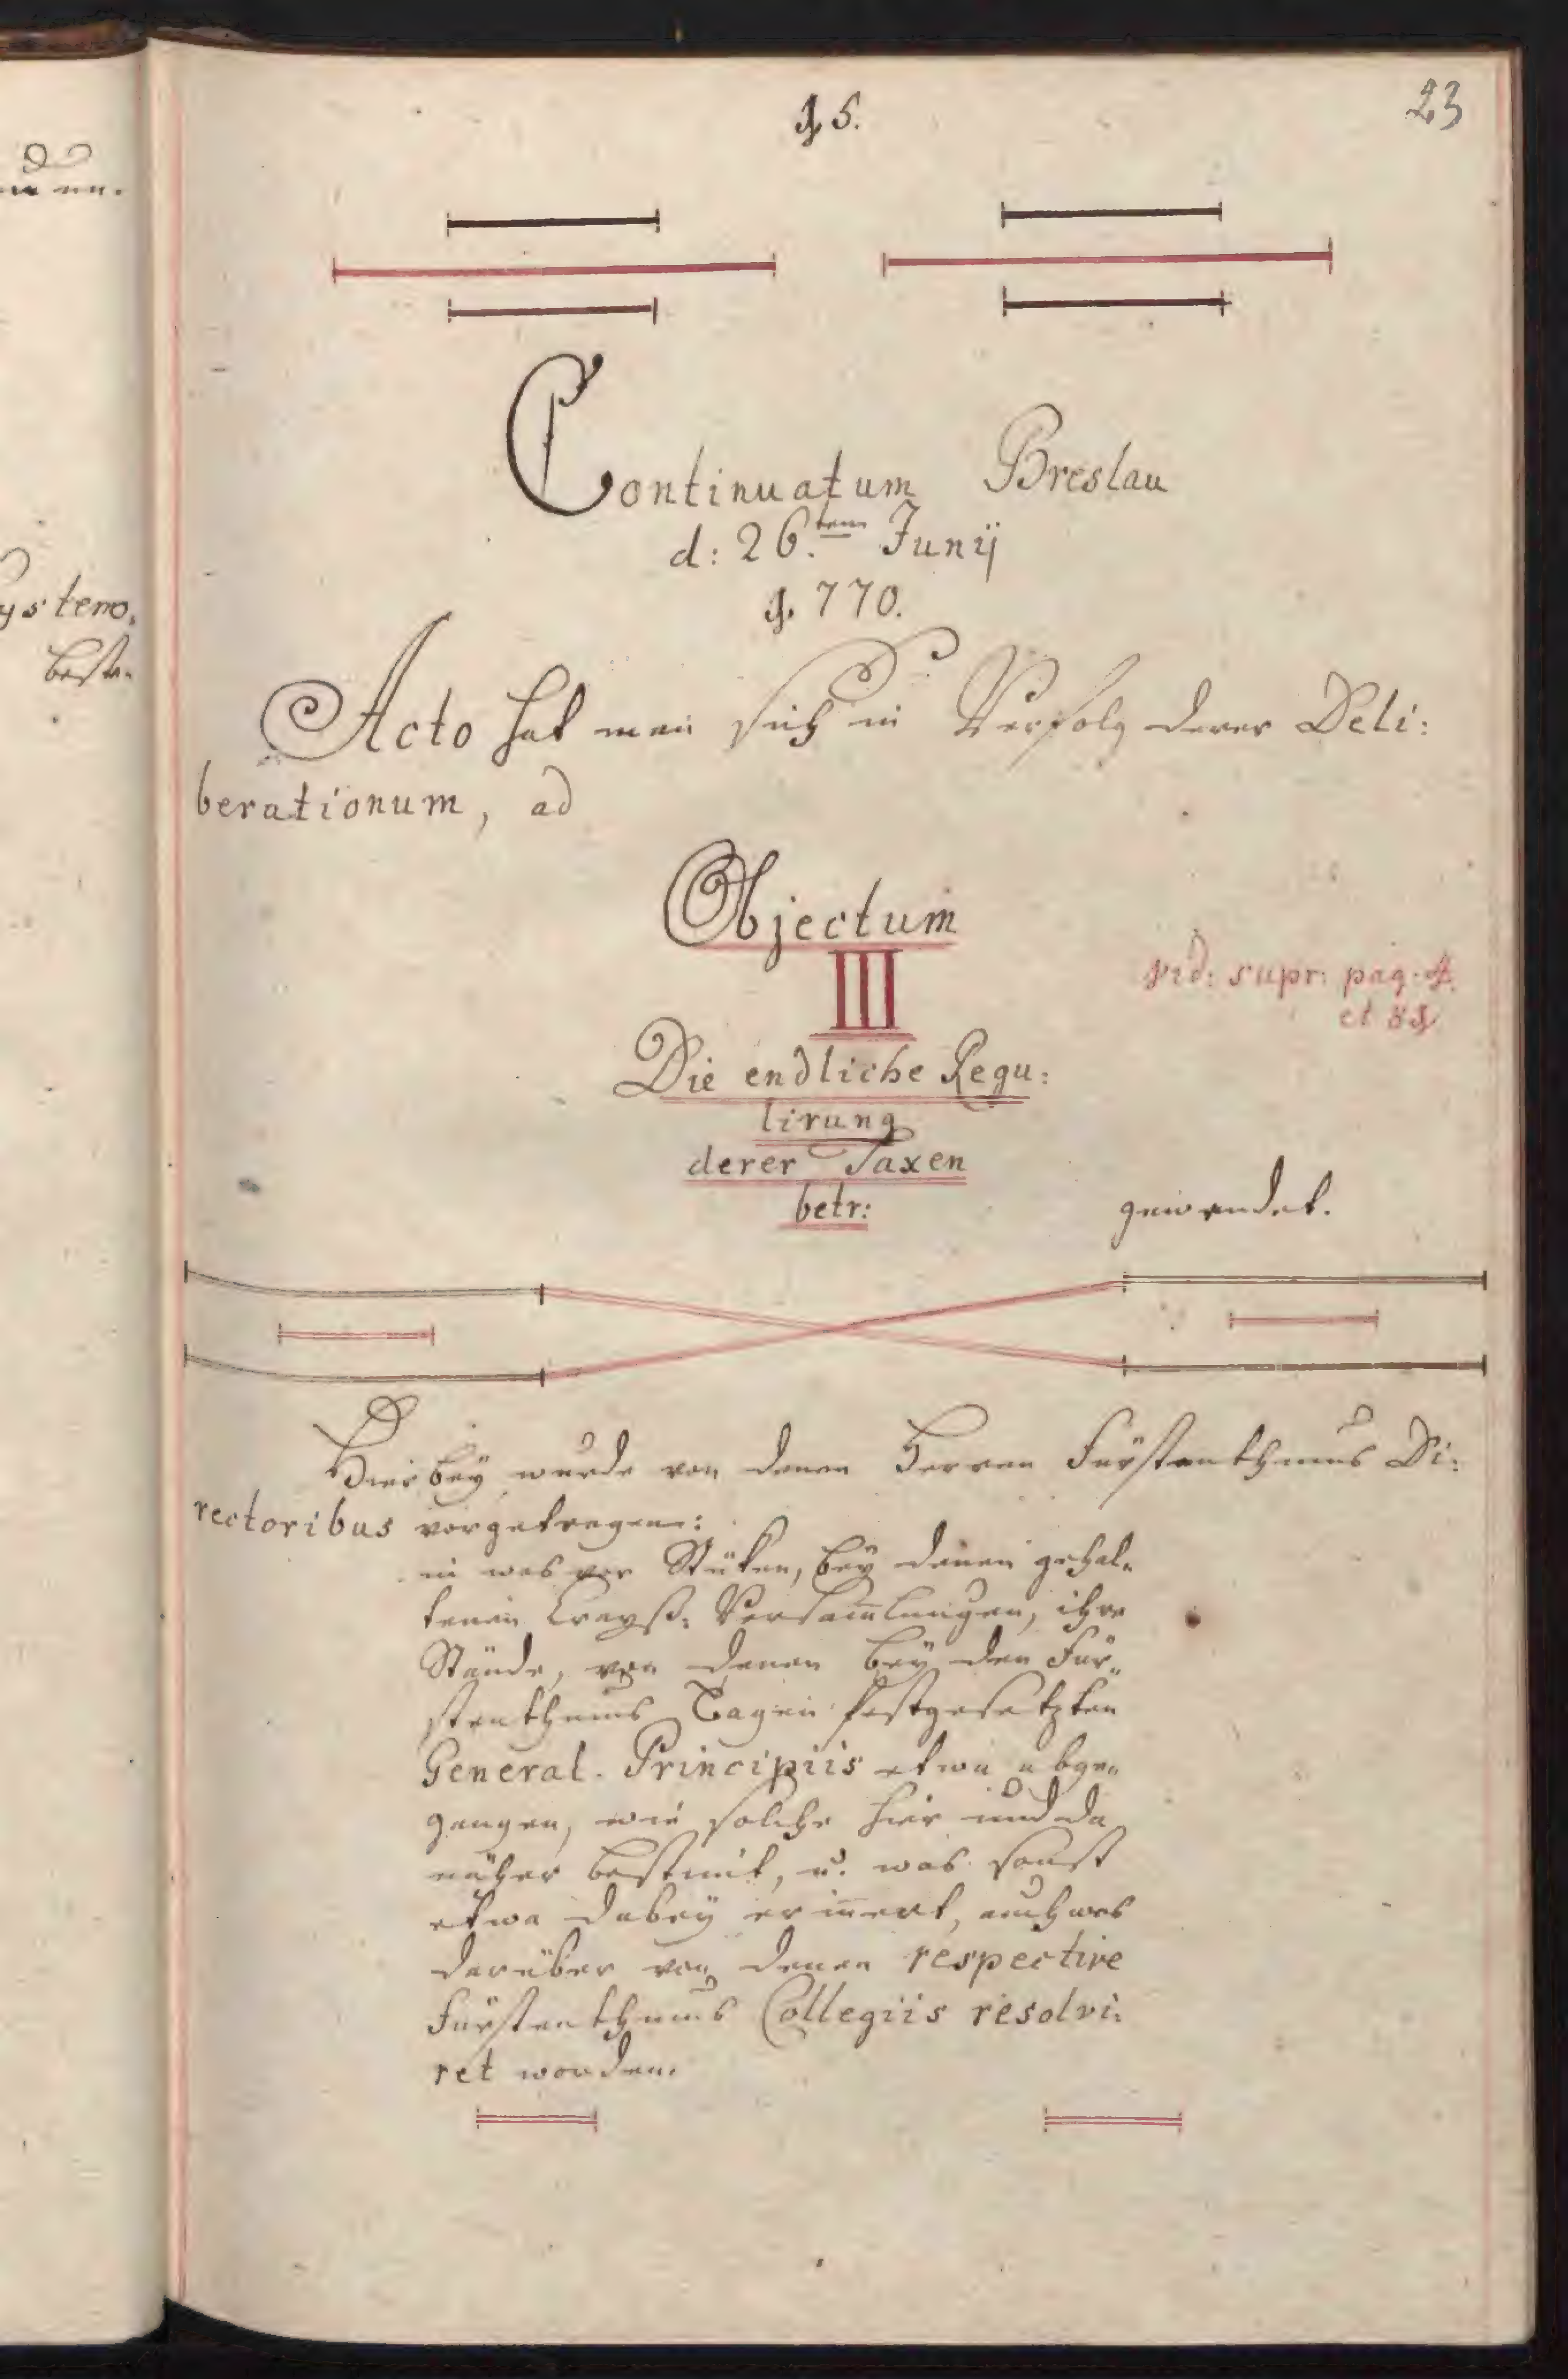 15.
23
Continuatum Breslau
d: 26.ten Junij
1770.
Acto hat man sich in Verfolg derer Deli:
berationum, ad
Objectum
III
vid: supr: pag. 4.
et 81
Die endliche Regu:
lirung
derer Taxen
betr:
gewendet.
Hierbey wurde von denen Herren Fürstenthums Di:
rectoribus vorgetragen:
in was vor Stüken, bey denen gehal„
tenen Creyß: Versam̅lungen, ihre
Stände, von denen bey den Für„
stenthums Tagen festgesetzten
General. Principiis etwa abge„
gangen, wie solche hier und da
näher bestimt, u. was sonst
etwa dabey erin̅ert, auch was
darüber von denen respective
Fürstenthums Collegiis resolvi:
ret worden.
ystem.